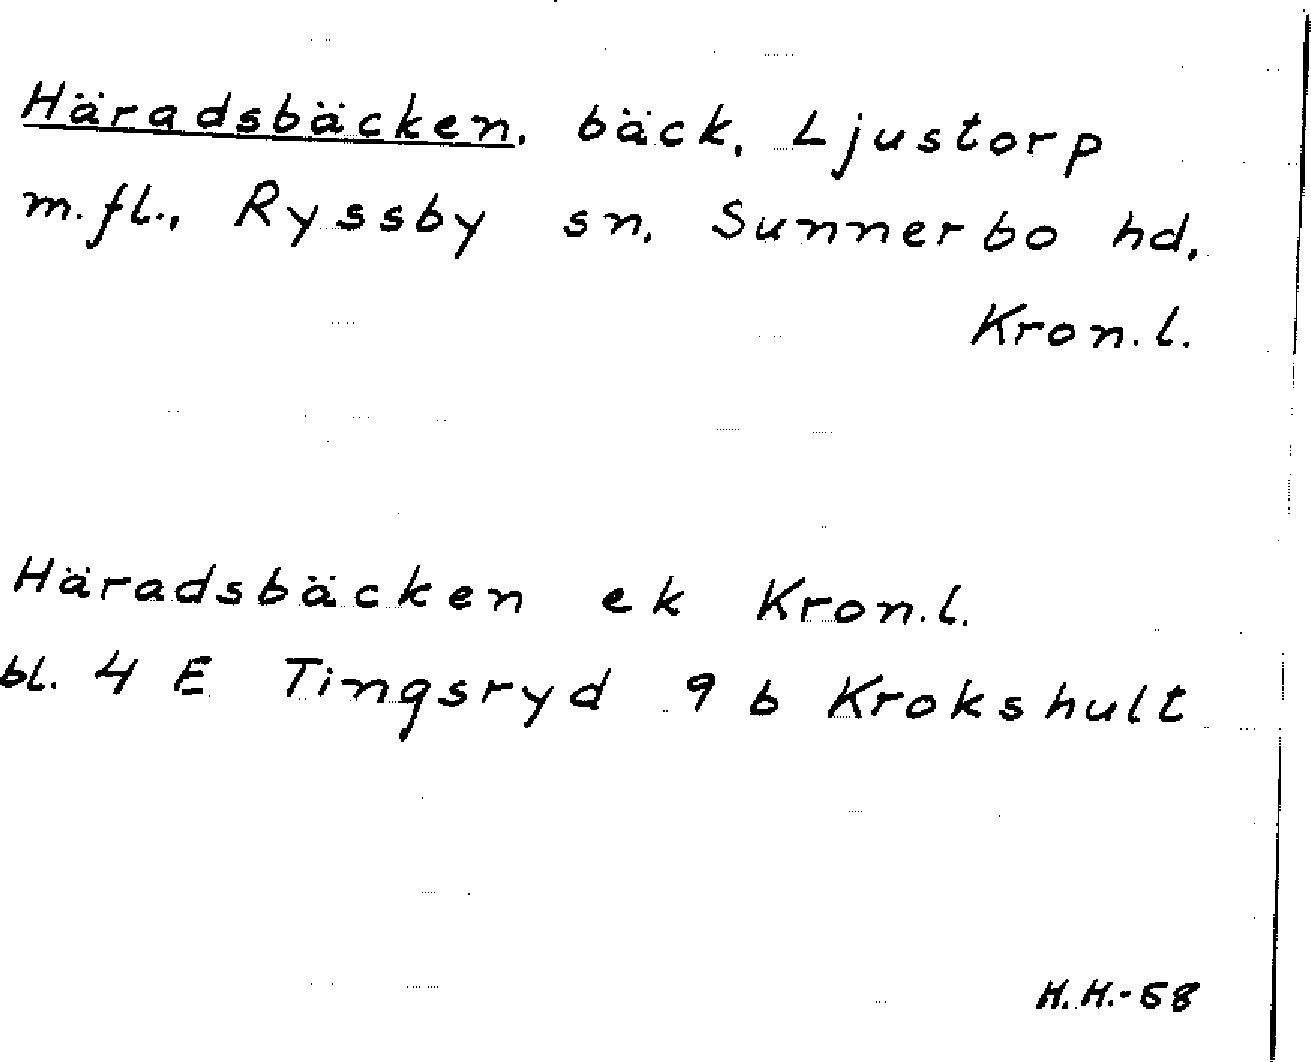 Häradsbäcken, bäck, Ljustorp
m.fl., Ryssby sn, Sunnerbo hd,
Kron.l.
Häradsbäcken ek Kron.l.
bl. 4 E Tingsryd 9 b Krokshult
H.H.-68